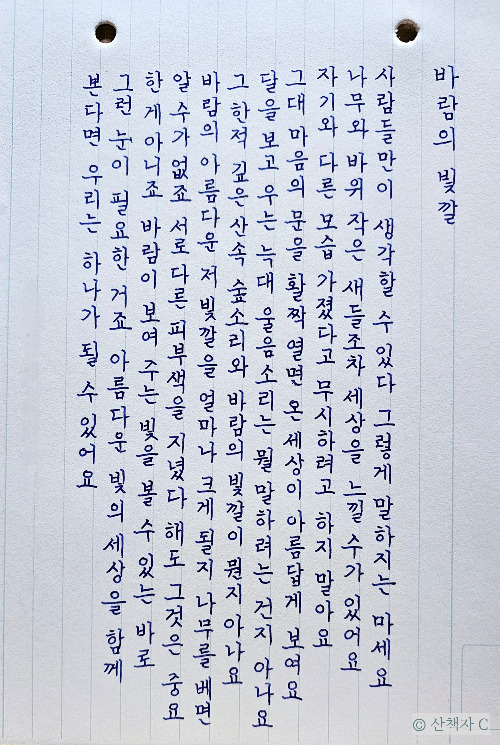 바람의 빛깔
사람들만이 생각할 수 있다 그렇게 말하지는 마세요
나무와 바위 작은 새들조차 세상을 느낄 수가 있어요
자기와 다른 모습 가졌다고 무시하려고 하지 말아요
그대 마음의 문을 활짝 열면 온 세상이 아름답게 보여요
달을 보고 우는 늑대 울음소리는 뭘 말하려는 건지 아나요
그 한적 깊은 산속 숲소리와 바람의 빛깔이 뭔지 아나요
바람의 아름다운 저 빛깔을 얼마나 크게 될지 나무를 베면
알 수가 없죠 서로 다른 피부색을 지녔다 해도 그것은 중요
한 게 아니죠 바람이 보여 주는 빛을 볼 수 있는 바로
그런 눈이 필요한 거죠 아름다운 빛의 세상을 함께
본다면 우리는 하나가 될 수 있어요
© 산책자 C